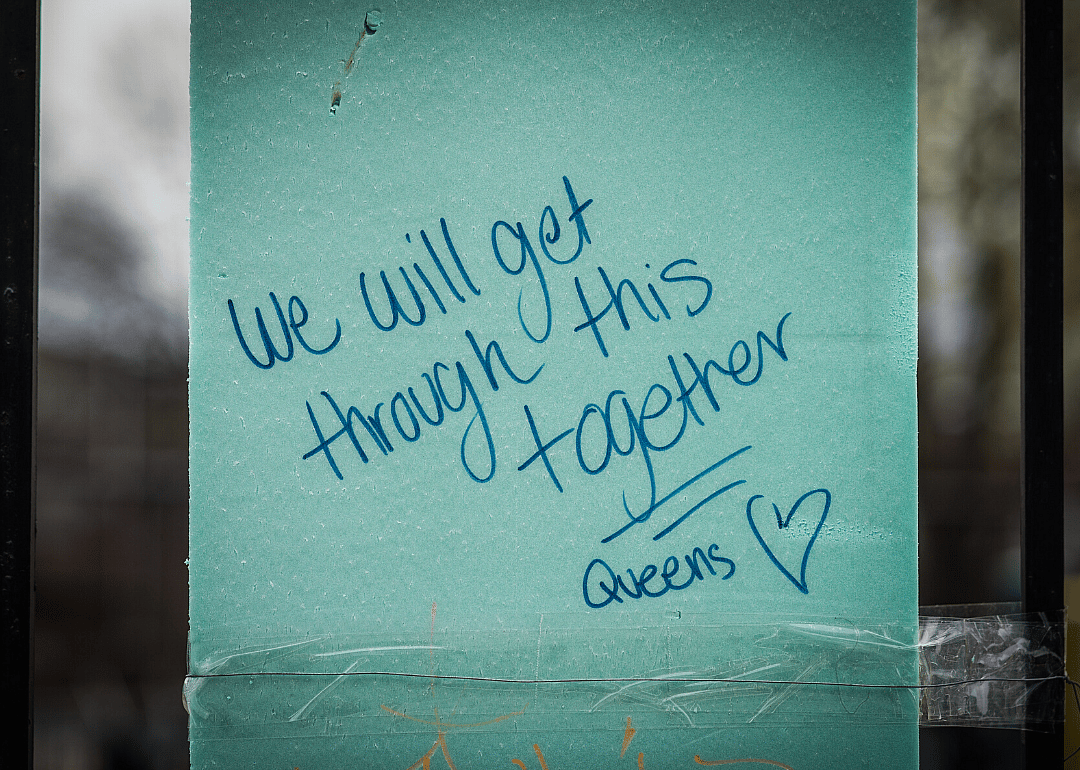 We will get
through this
together
Queens ♡